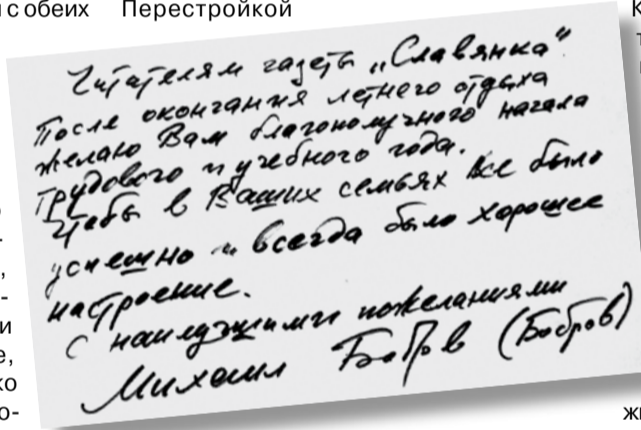 с обеих Перестройкой
Читателям газеты „Славянка“
После окончания летнего отдыха
желаю Вам благополучного начала
трудового и учебного года.
Чтобы в Ваших семьях все было
успешно и всегда было хорошее
настроение.
С наилучшими пожеланиями
Михаил Бобров (Бобров)